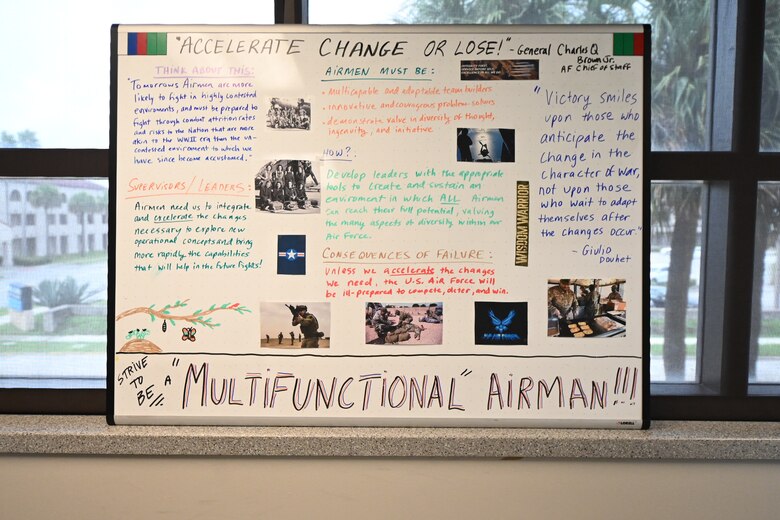 "ACCELERATE CHANGE OR LOSE!" - General Charles Q
Brown Jr.
AF Chief of Staff
THINK ABOUT THIS:
"Tomorrows Airmen are more
likely to fight in highly contested
enviroments, and must be prepared to
fight through combat attrition rates
and risks to the Nation that are more
akin to the WWII era than the un-
contested environment to which we
have since become accustomed."
SUPERVISORS/LEADERS:
Airmen need us to integrate
and accelerate the changes
necessary to explore new
operational concepts and bring
more rapidly the capabilities
that will help in the future fights!
AIRMEN MUST BE:
• multicapable and adaptable team builders
• innovative and courageous problem solvers
• demonstrate value in diversity of thought,
ingenuity, and initiative.
HOW?
Develop leaders with the appropriate
tools to create and sustain an
enviroment in which ALL Airmen
can reach their full potential, valuing
the many aspects of diversity within our
Air Force.
CONSEQUENCES OF FAILURE:
Unless we accelerate the changes
we need, the U.S. Air Force will
be ill-prepared to compete, deter, and win.
WISDOM WARRIOR
"Victory smiles
upon those who
anticipate the
change in the
character of war,
not upon those
who wait to adapt
themselves after
the changes occur."
- Giulio
Douhet
STRIVE
TO
BE
A
"MULTIFUNCTIONAL" AIRMAN!!!